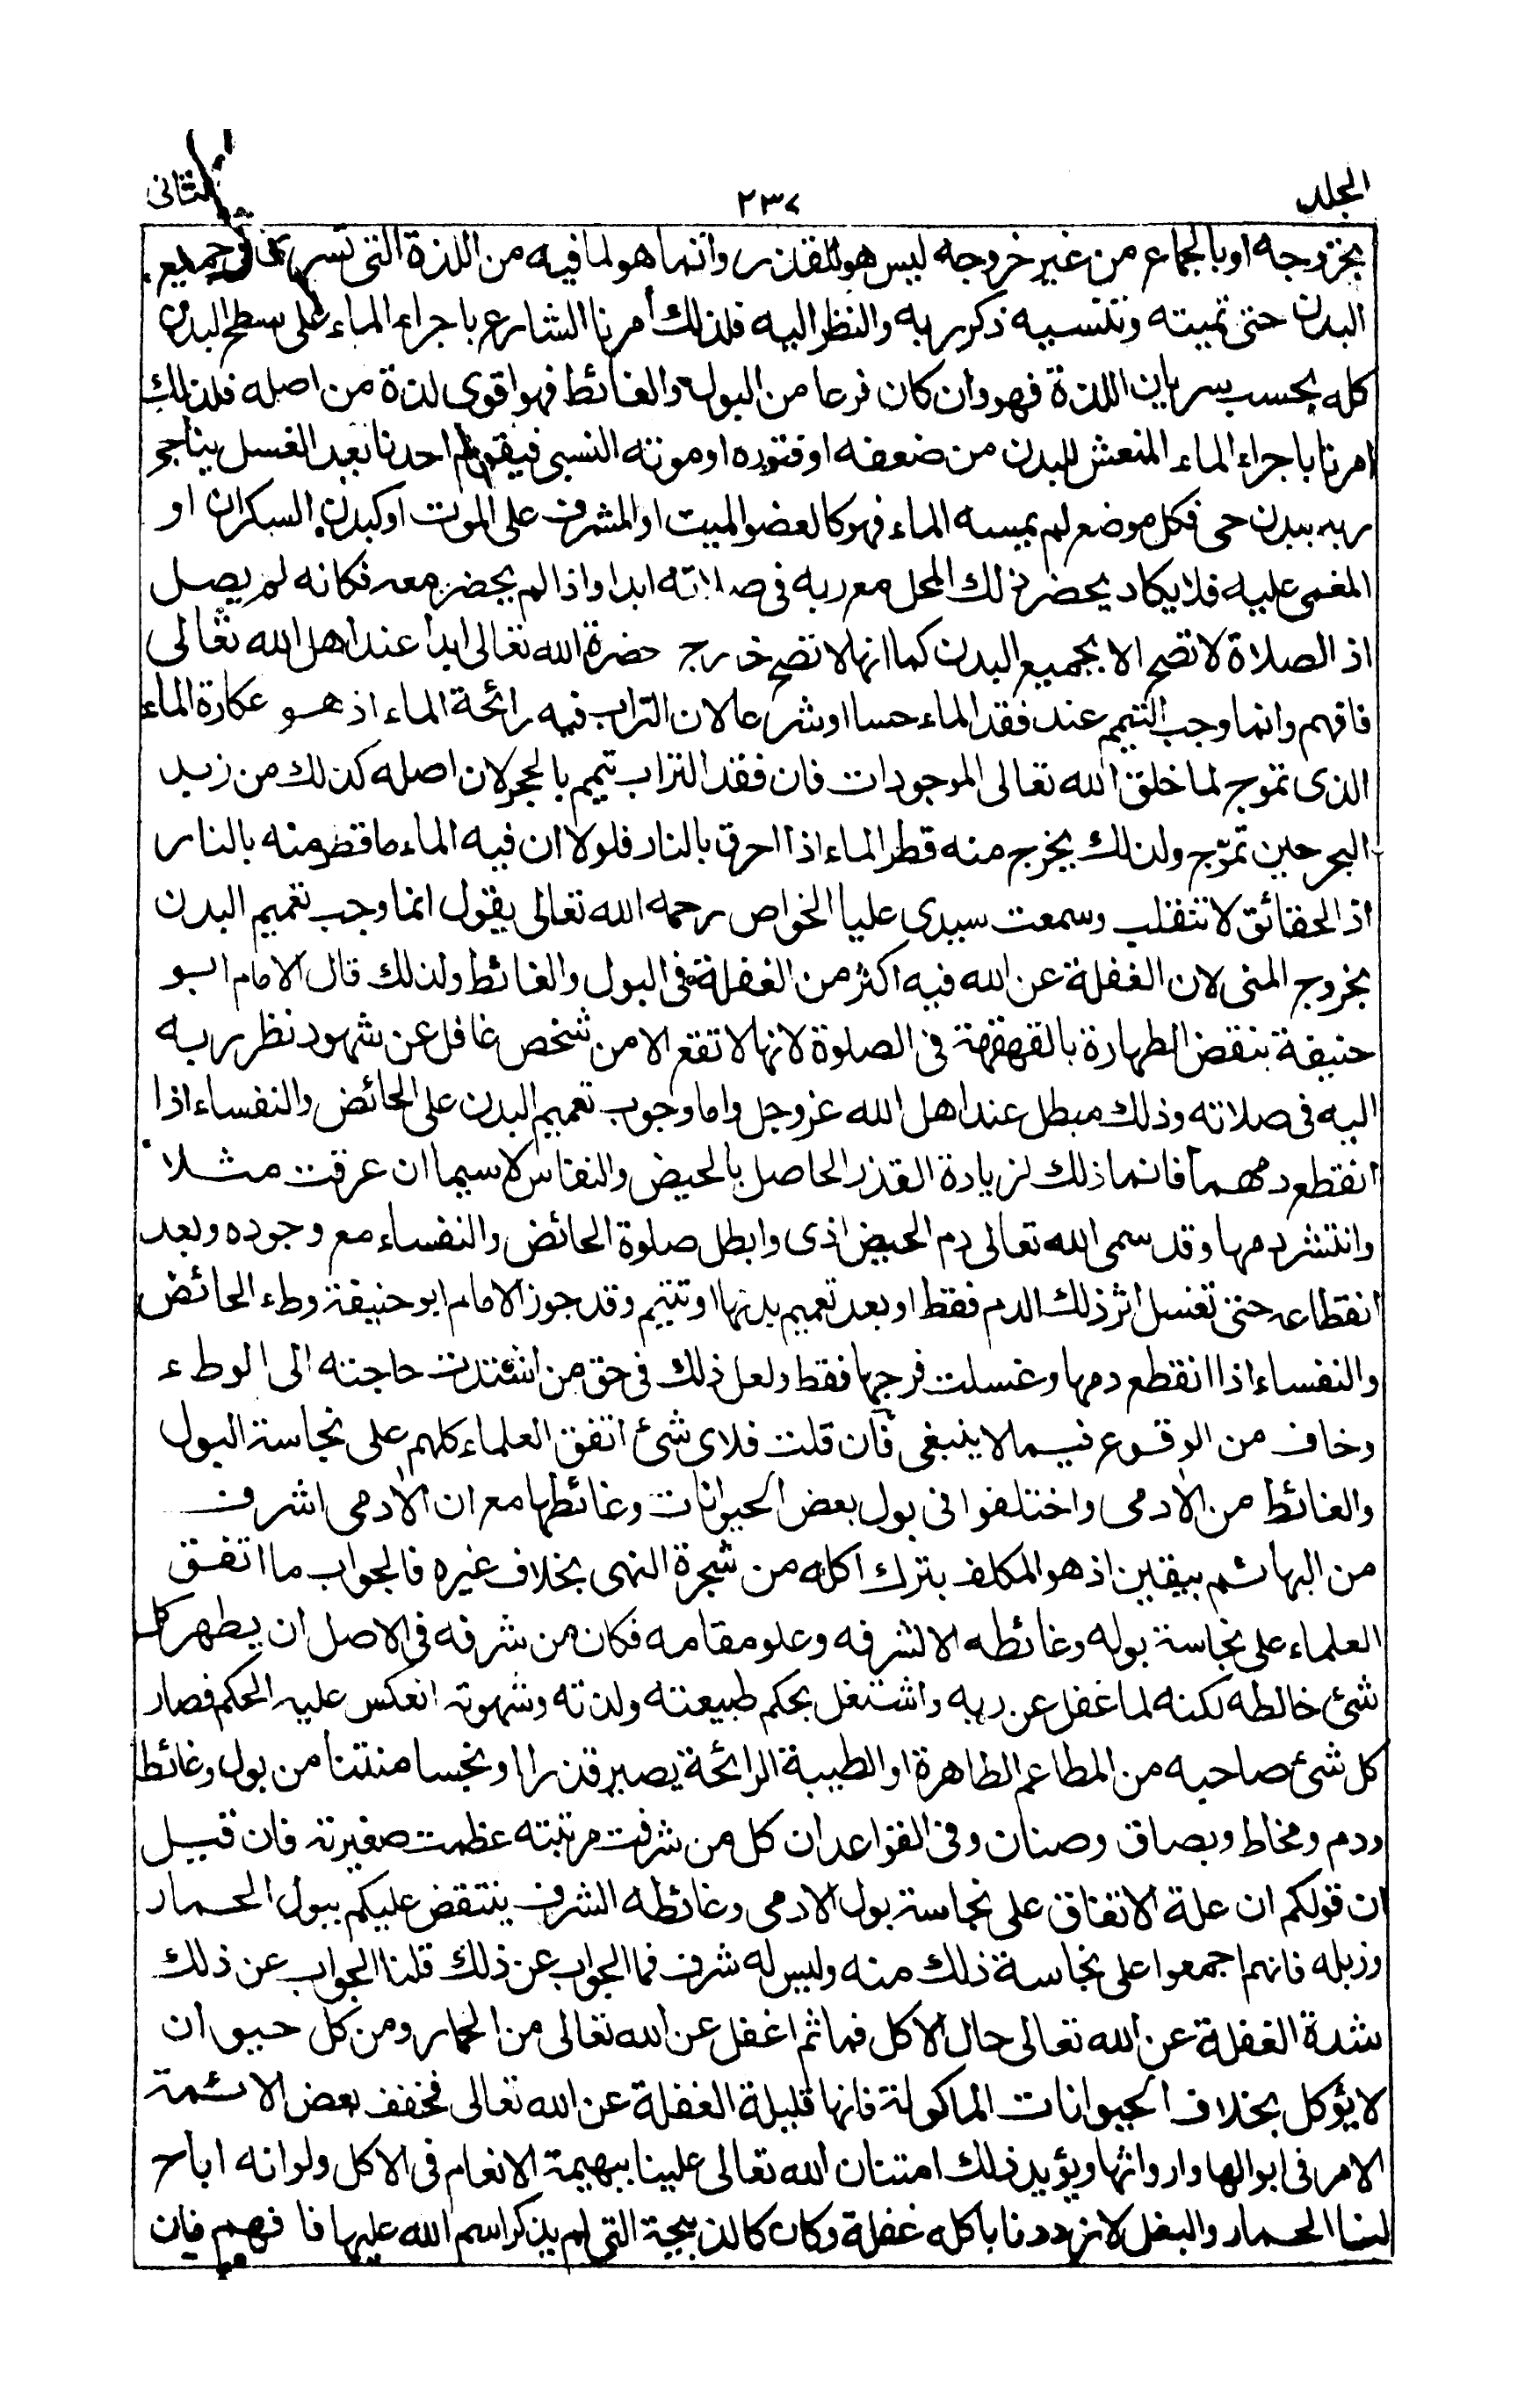 المجلد
٢٣٧
الثانى
بخروجه او بالجماع من غير خروجه ليس هو للقذر وانما هو لما فيه من اللذة التى تسرى فى جميع
البدن حتى تميته وتنسيه ذكر ربه والنظر اليه فلذلك أمرنا الشارع باجراء الماء على سطح البدن
كله بحسب سريان اللذة فهو وان كان فرعا من البول والغائط فهو اقوى لذة من اصله فلذلك
امرنا باجراء الماء المنعش للبدن من ضعفه او فتوره او موته النسبى فيقوم احدنا بعد الغسل يناجى
ربه ببدن حى فكل موضع لم يمسه الماء فهو كالعضو الميت او المشرف على الموت او كبدن السكران او
المغمى عليه فلا يكاد يحضر ذلك المحل مع ربه فى صلاته ابدا واذا لم يحضر معه فكانه لم يصل
اذ الصلاة لا تصح الا بجميع البدن كما انها لا تصح خارج حضرة الله تعالى ابدا عند اهل الله تعالى
فافهم وانما وجب التيمم عند فقد الماء حسا او شرعا لان التراب فيه رائحة الماء اذ هو عكارة الماء
الذى تموج لما خلق الله تعالى الموجودات فان فقد التراب تيمم بالحجر لان اصله كذلك من زبد
البحر حين تموّج ولذلك يخرج منه قطر الماء اذا احرق بالنار فلولا ان فيه الماء ما قطر منه بالنار
اذ الحقائق لا تنقلب وسمعت سيدى عليا الخواص رحمه الله تعالى يقول انما وجب تعميم البدن
بخروج المنى لان الغفلة عن الله فيه اكثر من الغفلة فى البول والغائط ولذلك قال الامام ابو
حنيفة بنقض الطهارة بالقهقهة فى الصلوة لانها لا تقع الا من شخص غافل عن شهود نظر ربه
اليه فى صلاته وذلك مبطل عند اهل الله عز وجل واما وجوب تعميم البدن على الحائض والنفساء اذا
انقطع دمهما فانما ذلك لزيادة القذر الحاصل بالحيض والنفاس لاسيما ان عرقت مثلا
وانتشر دمها وقد سمى الله تعالى دم الحيض اذى وابطل صلوة الحائض والنفساء مع وجوده وبعد
انقطاعه حتى تغسل اثر ذلك الدم فقط او بعد تعميم بدنها او تتيمم وقد جوز الامام ابو حنيفة وطء الحائض
والنفساء اذا انقطع دمها وغسلت فرجها فقط ولعل ذلك فى حق من اشتدت حاجته الى الوطء
وخاف من الوقوع فيما لا ينبغى فان قلت فلاى شئ اتفق العلماء كلهم على نجاسة البول
والغائط من الادمى واختلفوا فى بول بعض الحيوانات وغائطها مع ان الادمى اشرف
من البهائم بيقين اذ هو المكلف بترك اكله من شجرة النهى بخلاف غيره فالجواب ما اتفق
العلماء على نجاسة بوله وغائطه الا لشرفه وعلو مقامه فكان من شرفه فى الاصل ان يطهر كل
شئ خالطه لكنه لما غفل عن ربه واشتغل بحكم طبيعته ولذته وشهوته انعكس عليه الحكم فصار
كل شئ صاحبه من المطاعم الطاهرة او الطيبة الرائحة يصير قذرا او نجسا منتنا من بول وغائط
ودم ومخاط وبصاق وصنان وفى القواعد ان كل من شرفت مرتبته عظمت صغيرته فان قيل
ان قولكم ان علة الاتفاق على نجاسة بول الادمى وغائطه الشرف ينتقض عليكم ببول الحمار
وزبله فانهم اجمعوا على نجاسة ذلك منه وليس له شرف فما الجواب عن ذلك قلنا الجواب عن ذلك
شدة الغفلة عن الله تعالى حال الاكل فما ثم اغفل عن الله تعالى من الحمار ومن كل حيوان
لا يؤكل بخلاف الحيوانات الماكولة فانها قليلة الغفلة عن الله تعالى فخفف بعض الائمة
الامر فى ابوالها وارواثها ويؤيد ذلك امتنان الله تعالى علينا ببهيمة الانعام فى الاكل ولو انه اباح
لنا الحمار والبغل لازددنا باكله غفلة وكان كالذبيحة التى لم يذكر اسم الله عليها فافهم فان